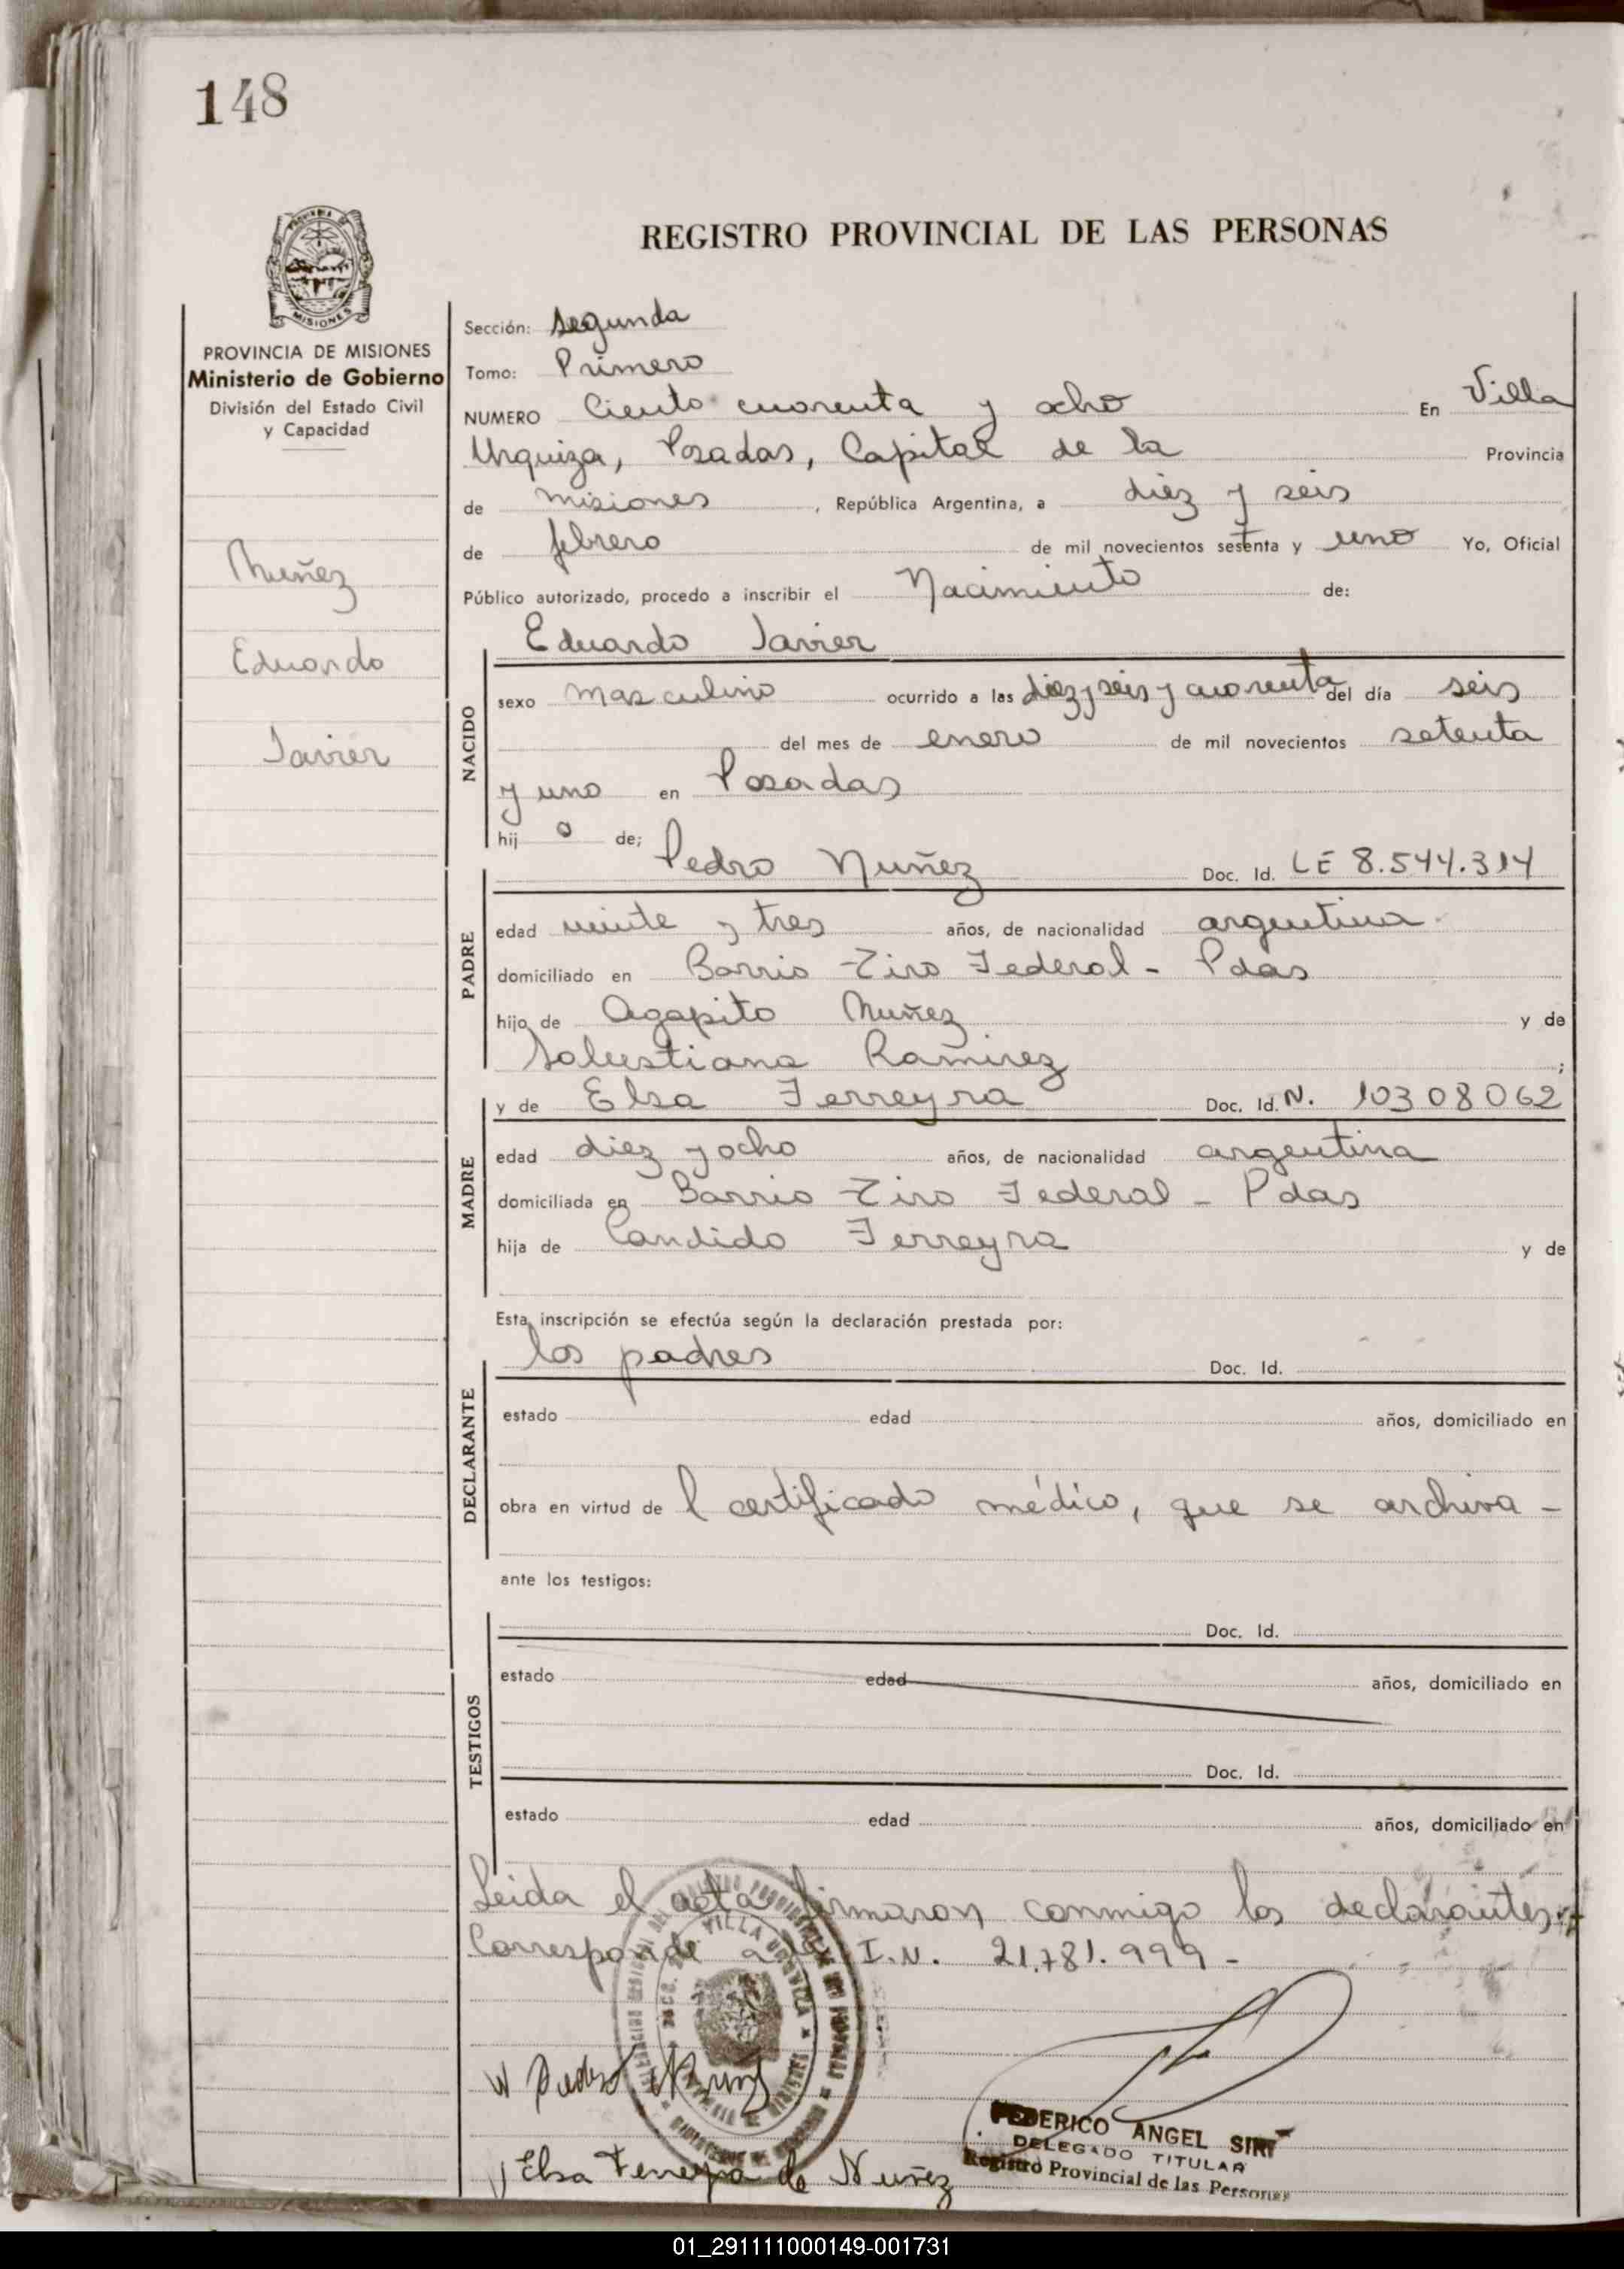 148
REGISTRO PROVINCIAL DE LAS PERSONAS
MISIONES
PROVINCIA DE MISIONES
Ministerio de Gobierno
División del Estado Civil
y Capacidad
Nuñez
Eduardo
Javier
Sección: Segunda
Tomo: Primero
NUMERO Ciento cuarenta y ocho En Villa
Urquiza, Posadas, Capital de la Provincia
de misiones, República Argentina, a diez y seis
de febrero de mil novecientos setenta y uno Yo, Oficial
Público autorizado, procedo a inscribir el Nacimiento de:
Eduardo Javier
NACIDO
sexo masculino ocurrido a las diez y seis y cuarenta del día seis
del mes de enero de mil novecientos setenta
y uno en Posadas
hij o de; Pedro Nuñez Doc. Id. LE 8.544.314
PADRE
edad veinte y tres años, de nacionalidad argentina
domiciliado en Barrio Tiro Federal - Pdas
hijo de Agapito Nuñez y de
Salustiana Ramirez ;
y de Elsa Ferreyra Doc. Id. N. 10308062
MADRE
edad diez y ocho años, de nacionalidad argentina
domiciliada en Barrio Tiro Federal - Pdas
hija de Candido Ferreyra y de
Esta inscripción se efectúa según la declaración prestada por:
los padres Doc. Id.
DECLARANTE
estado edad años, domiciliado en
obra en virtud de l certificado médico, que se archiva -
ante los testigos:
Doc. Id.
TESTIGOS
estado edad años, domiciliado en
Doc. Id.
estado edad años, domiciliado en
Leida el acta firmaron conmigo los declarantes.
Corresponde a I.N. 21.781.999 -
VILLA URQUIZA
Pedro Nuñez
Elsa Ferreyra de Nuñez
FEDERICO ANGEL SIRI
DELEGADO TITULAR
Registro Provincial de las Personas
01_291111000149-001731